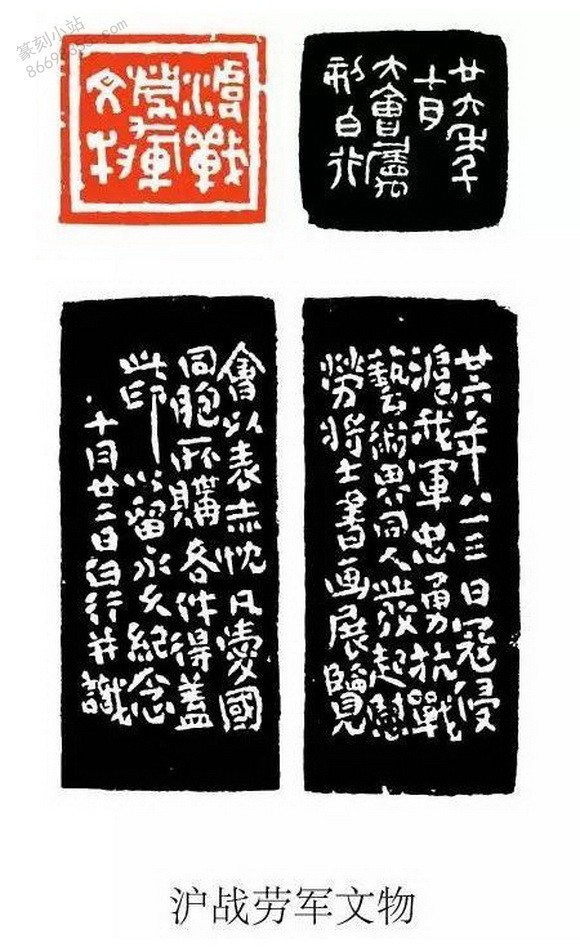 篆刻小站
滬戰
勞軍
文物
廿六年
十月
大會屬
刻白行
廿六年八一三日寇侵
滬我軍忠勇抗戰
藝術界同人發起慰
勞將士書画展覽
會以表赤忱凡愛國
同胞所購各件得蓋
此印以留永久紀念
十月廿二日白行并識
沪战劳军文物